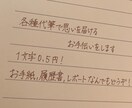 各種代筆で思いを届ける
お手伝いをします
1文字0.5円！
お手紙、履歴書、レポートなんでもどうぞ！